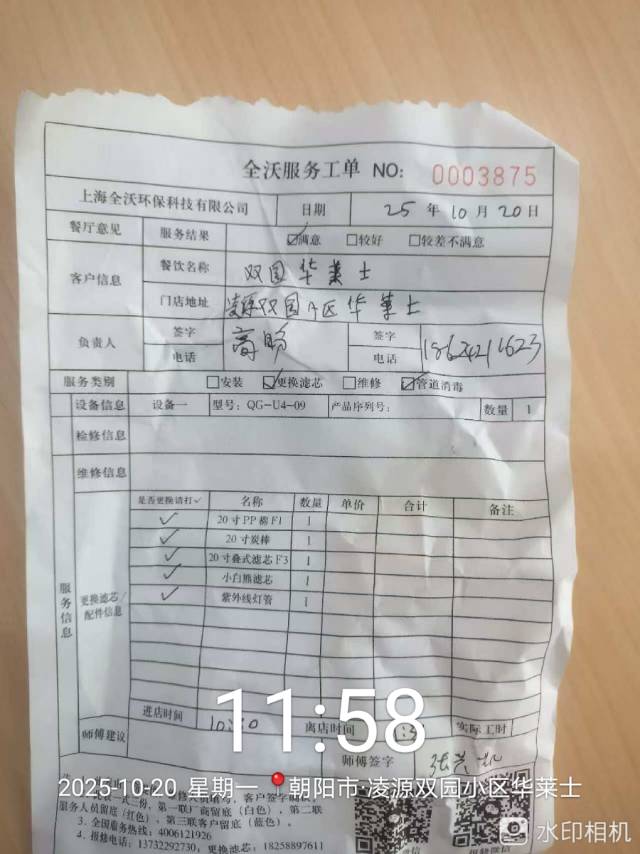 全沃服务工单 NO: 0003875
上海全沃环保科技有限公司 日期 25 年 10 月 20 日
餐厅意见 服务结果 ☑满意 □较好 □较差不满意
客户信息 餐饮名称 双园华莱士
门店地址 凌源双园小区华莱士
负责人 签字 签字
电话 电话 18624211623
服务类别 □安装 ☑更换滤芯 □维修 ☑管道消毒
设备信息 设备一 型号: QG-U4-09 产品序列号: 数量 1
检修信息
维修信息
服务信息 更换滤芯/配件信息 是否更换请打✓ 名称 数量 单价 合计 备注
✓ 20寸PP棉F1 1
✓ 20寸炭棒 1
✓ 20寸叠式滤芯F3 1
✓ 小白熊滤芯 1
✓ 紫外线灯管 1
进店时间 离店时间 实际工时
师傅建议
师傅签字
11:58
2025-10-20 星期一 朝阳市·凌源双园小区华莱士
服务人员留底(红色)、第一联厂商留底(白色)、第二联
3. 全国服务热线: 4006121926 第三联客户留底(蓝色)。
4. 报修电话: 13732292730, 更换滤芯: 18258897611
水印相机